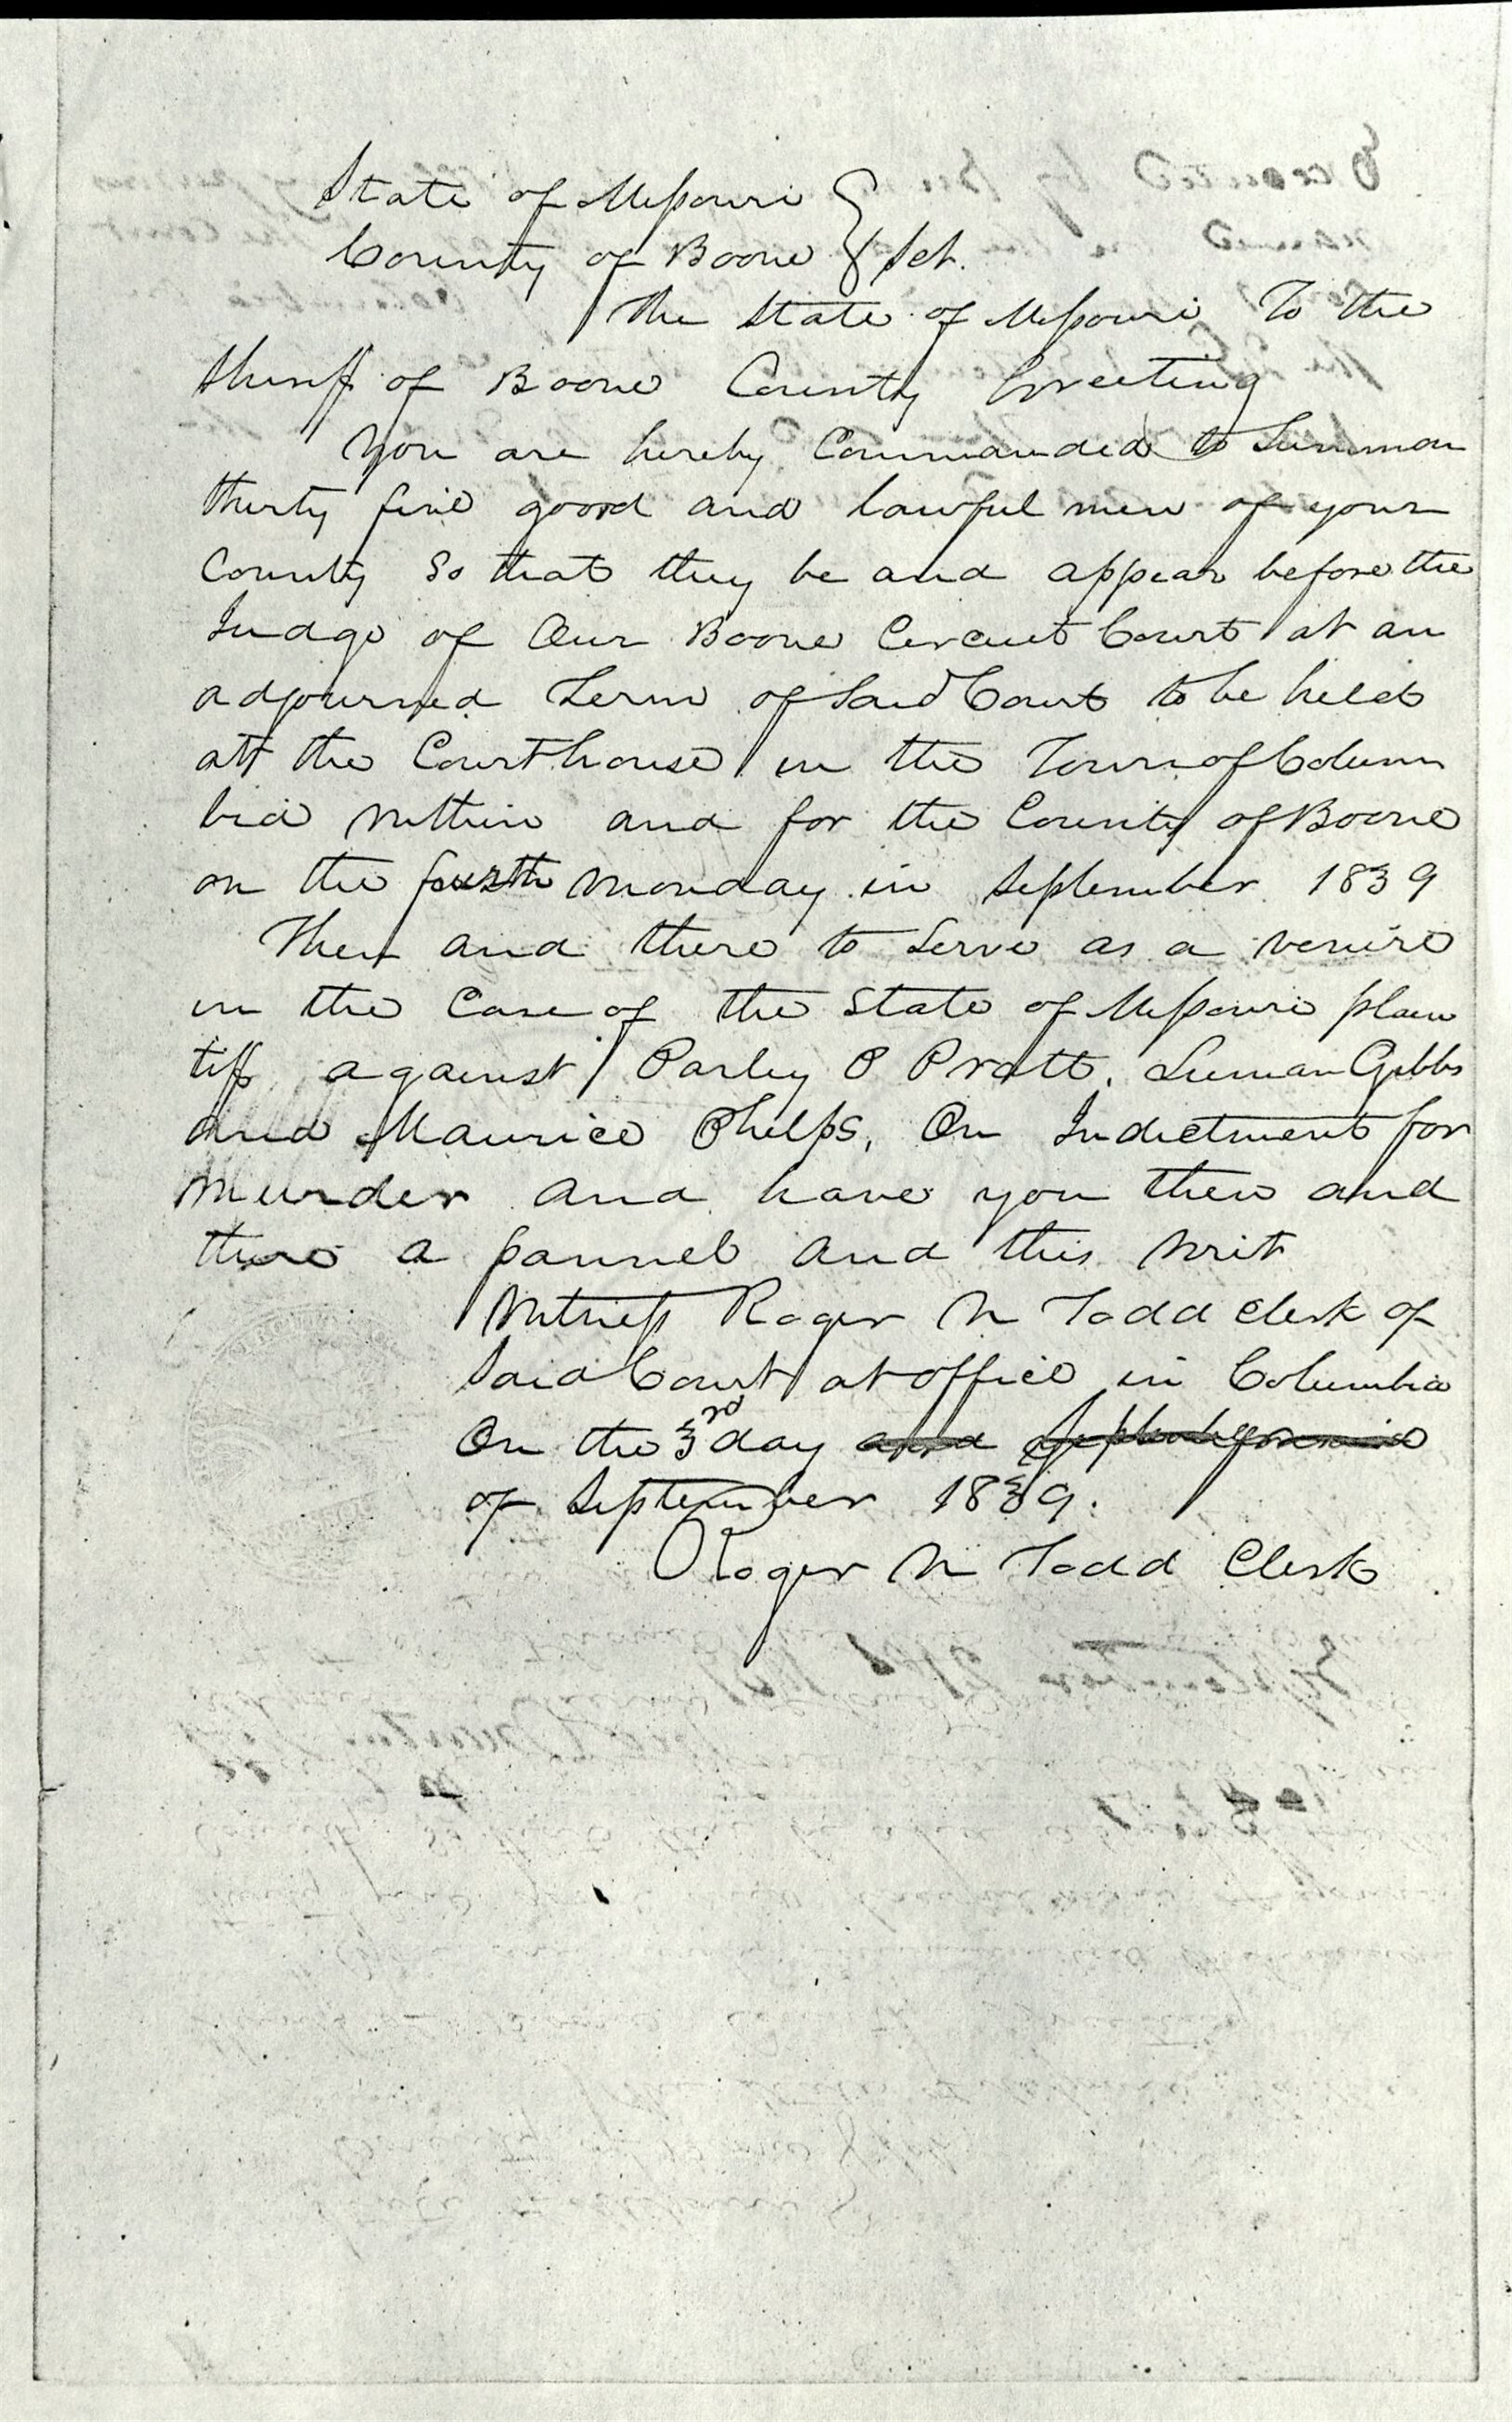 State of Missouri }
County of Boone } Sct.
The State of Missouri To the
Sheriff of Boone County Greeting
You are hereby Commanded to Summon
thirty five good and lawful men of your
County So that they be and appear before the
Judge of Our Boone Circuit Court at an
adjourned Term of Said Court to be held
att the Courthouse in the Town of Colum
bia Within and for the County of Boone
on the fourth Monday in September 1839
Then and there to Serve as a venire
in the Case of the State of Missouri plain
tiff against Parley P Pratt. Luman Gibbs
and Maurice Phelps, On Indictment for
Murder and have you then and
there a pannel and this Writ
Witness Roger N Todd Clerk of
Said Court at office in Columbia
On the 3rd day and
of September 1839.
Roger N Todd Clerk